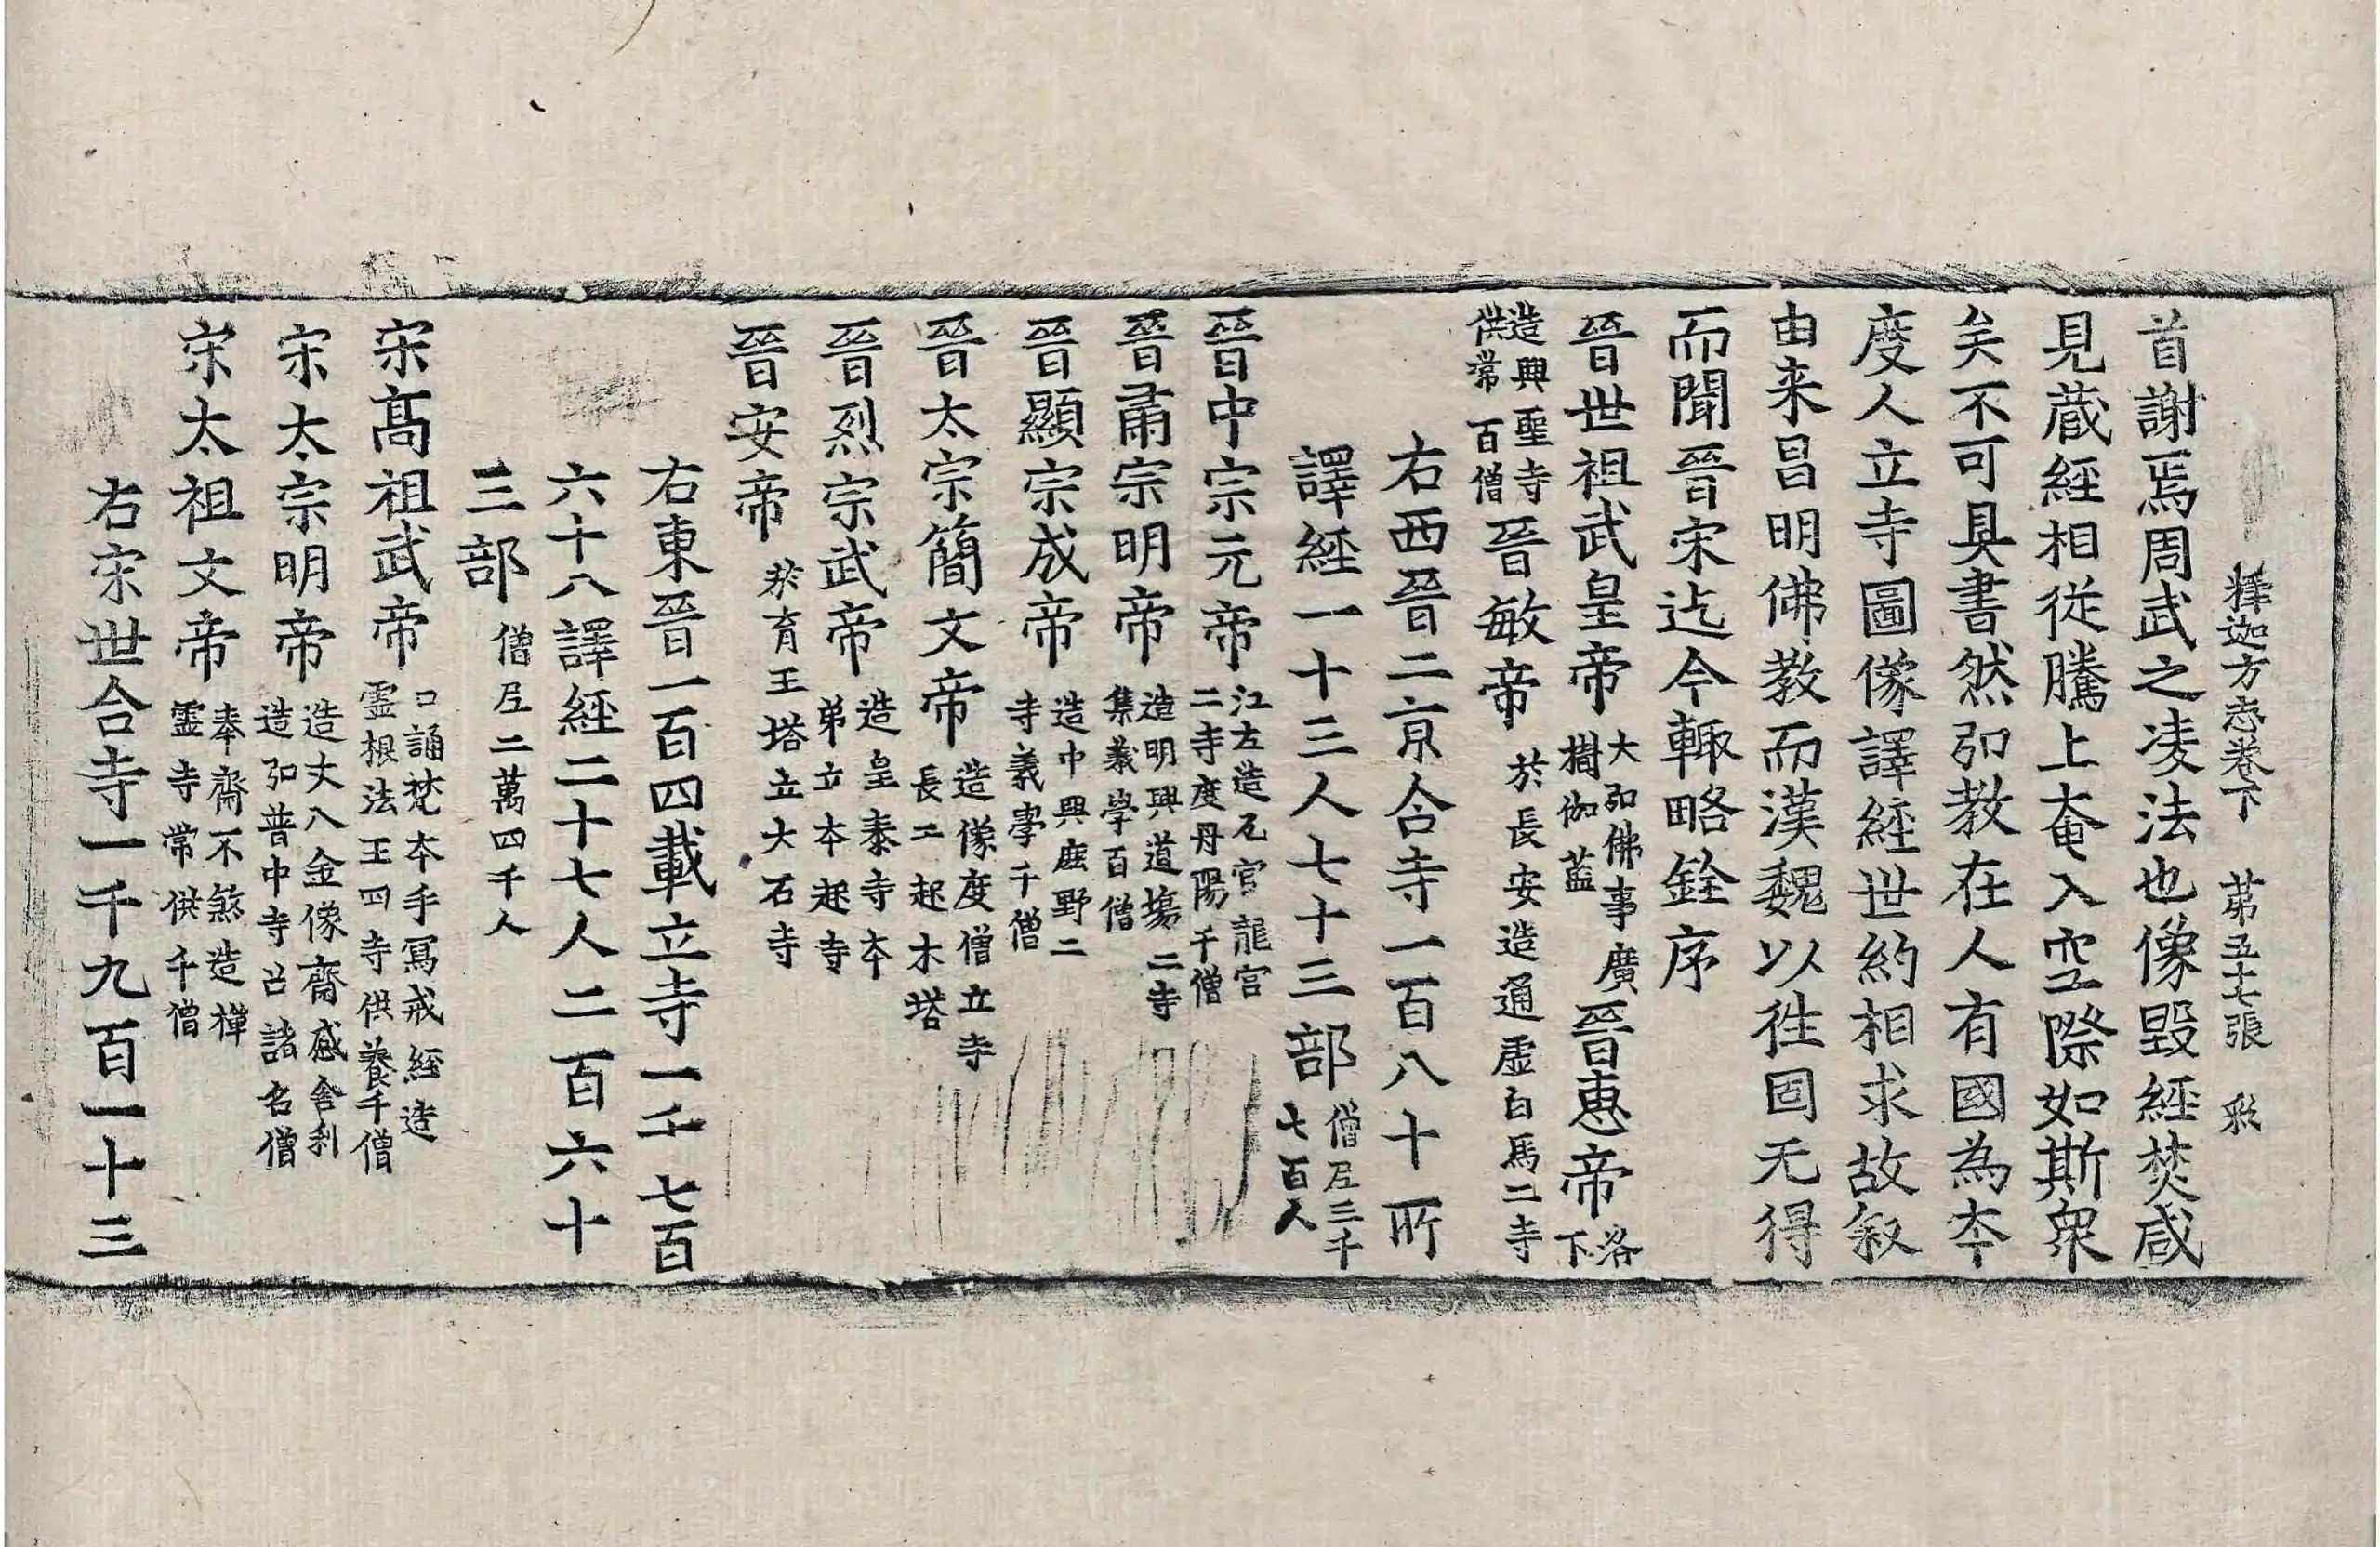 釋迦方志卷下 苐五十七張 彩
首謝焉周武之凌法也像毀經焚咸
見蔵經相從騰上奄入空際如斯衆
矣不可具書然弘教在人有國為夲
度人立寺圖像譯經世約相求故叙
由来昌明佛教而漢魏以往固无得
而聞晉宋迄今輙略銓序
晉世祖武皇帝 大弘佛事廣樹伽藍 晉惠帝 洛下
造興聖寺供常百僧 晉敏帝 於長安造通虛白馬二寺
右西晉二京合寺一百八十所
譯經一十三人七十三部 僧尼三千七百人
晉中宗元帝 江左造瓦官龍宮二寺度丹陽千僧
晉肅宗明帝 造明興道場二寺集義學百僧
晉顯宗成帝 造中興鹿野二寺義學千僧
晉太宗簡文帝 造像度僧立寺長干起木塔
晉烈宗武帝 造皇泰寺夲弟立夲起寺
晉安帝 於育王塔立大石寺
右東晉一百四載立寺一千七百
六十八譯經二十七人二百六十
三部 僧尼二萬四千人
宋髙祖武帝 口誦梵夲手寫戒經造靈根法王四寺供養千僧
宋太宗明帝 造丈八金像齋感舍利造弘普中寺召諸名僧
宋太祖文帝 奉齋不煞造禪靈寺常供千僧
右宋世合寺一千九百一十三